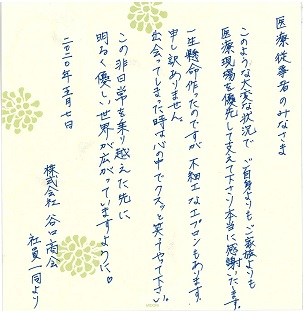 医療従事者のみなさま
このような大変な状況で ご自身よりも ご家族よりも
医療現場を優先して支えて下さり本当に感謝いたします。
一生懸命作ったのですが 不細工なエプロンもあります。
申し訳ありません。
出会ってしまった時は心の中でクスッと笑ってやって下さい。
この非日常を乗り越えた先に
明るく優しい世界が広がっていますように♡
二〇二〇年 五月七日
株式会社 谷口商会
社員一同より